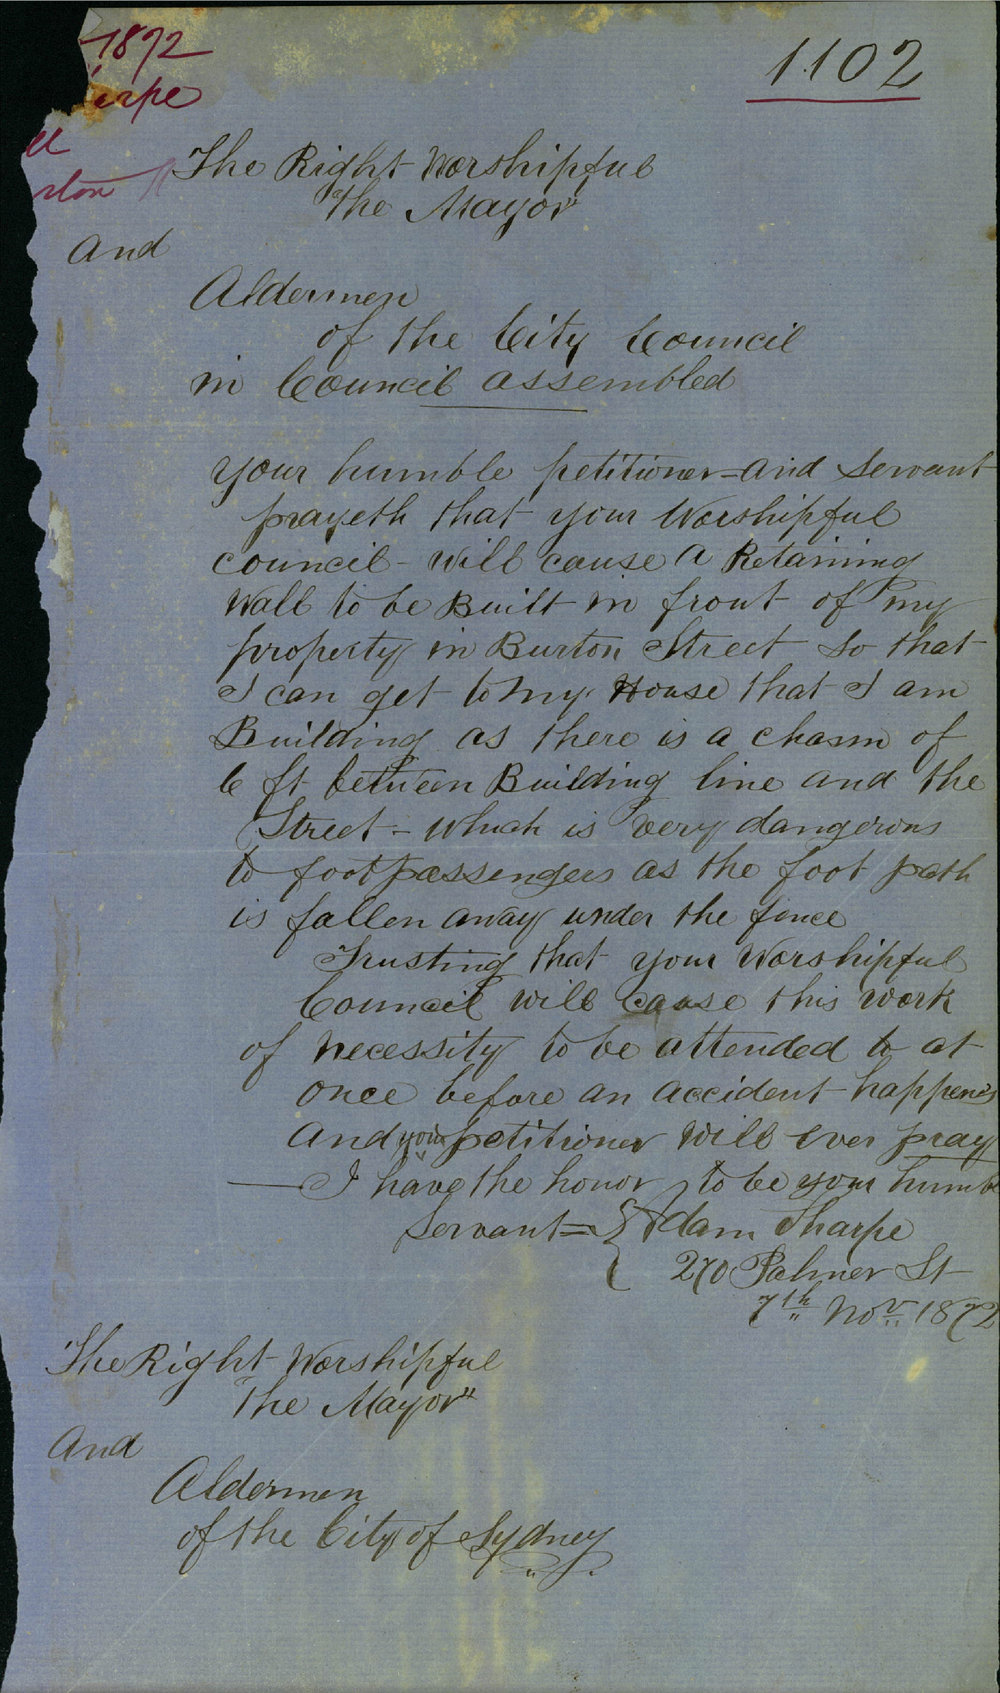 1872
arpe
ll
rton
1102
The Right Worshipful
"The Mayor"
And
Aldermen
of the City Council
in Council assembled
Your humble petitioner = and Servant
prayeth that your Worshipful
council - will cause a Retaining
Wall to be Built in front of my
property in Burton Street so that
I can get to my House that I am
Building as there is a chasm of
6 ft between Building line and the
Street - which is very dangerous
to foot passengers as the foot path
is fallen away under the fence
Trusting that your Worshipful
Council will cause this work
of necessity to be attended to at
once before an accident happens
And your petitioner will ever pray
— I have the honor to be your humb
Servant = { Adam Sharpe
270 Palmer St
7th Nov 1872
The Right Worshipful
"The Mayor"
And
Aldermen
of the City of Sydney